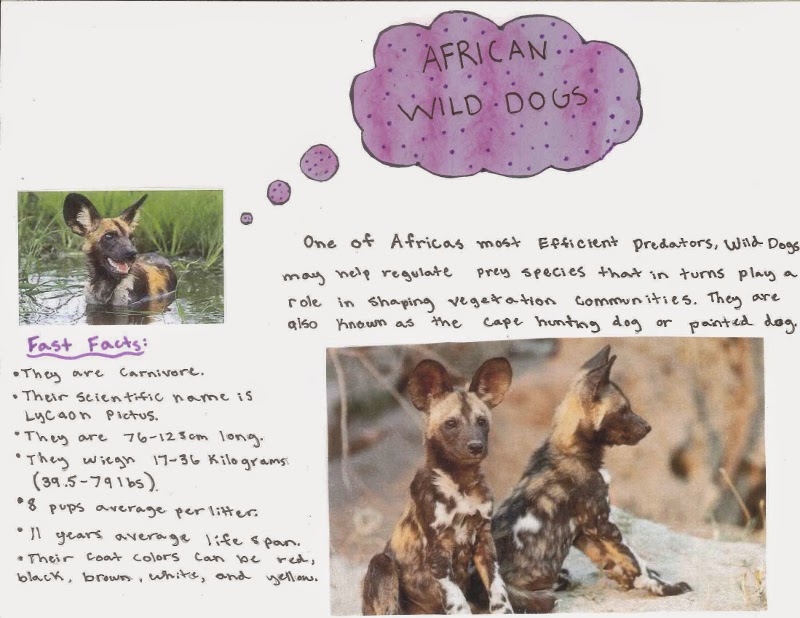 AFRICAN
WILD DOGS
One of Africas most Efficient predators, Wild Dogs
may help regulate prey species that in turns play a
role in shaping vegetation communities. They are
also known as the cape hunting dog or painted dog.
Fast Facts:
•They are Carnivore.
•Their scientific name is
Lycaon Pictus.
•They are 76-123cm long.
•They wiegh 17-36 Kilograms
(39.5-79lbs).
•8 pups average per litter.
•11 years average life span.
•Their coat colors can be red,
black, brown, white, and yellow.